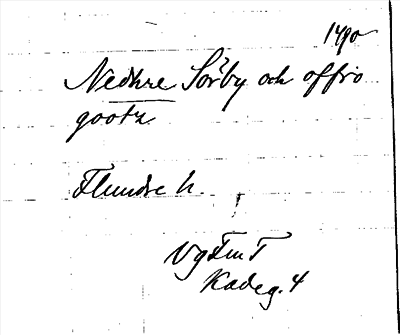 1490
Nedhre Sörby och offrö
gootz
Flundre h.
VgFmT
Kadeg. 4